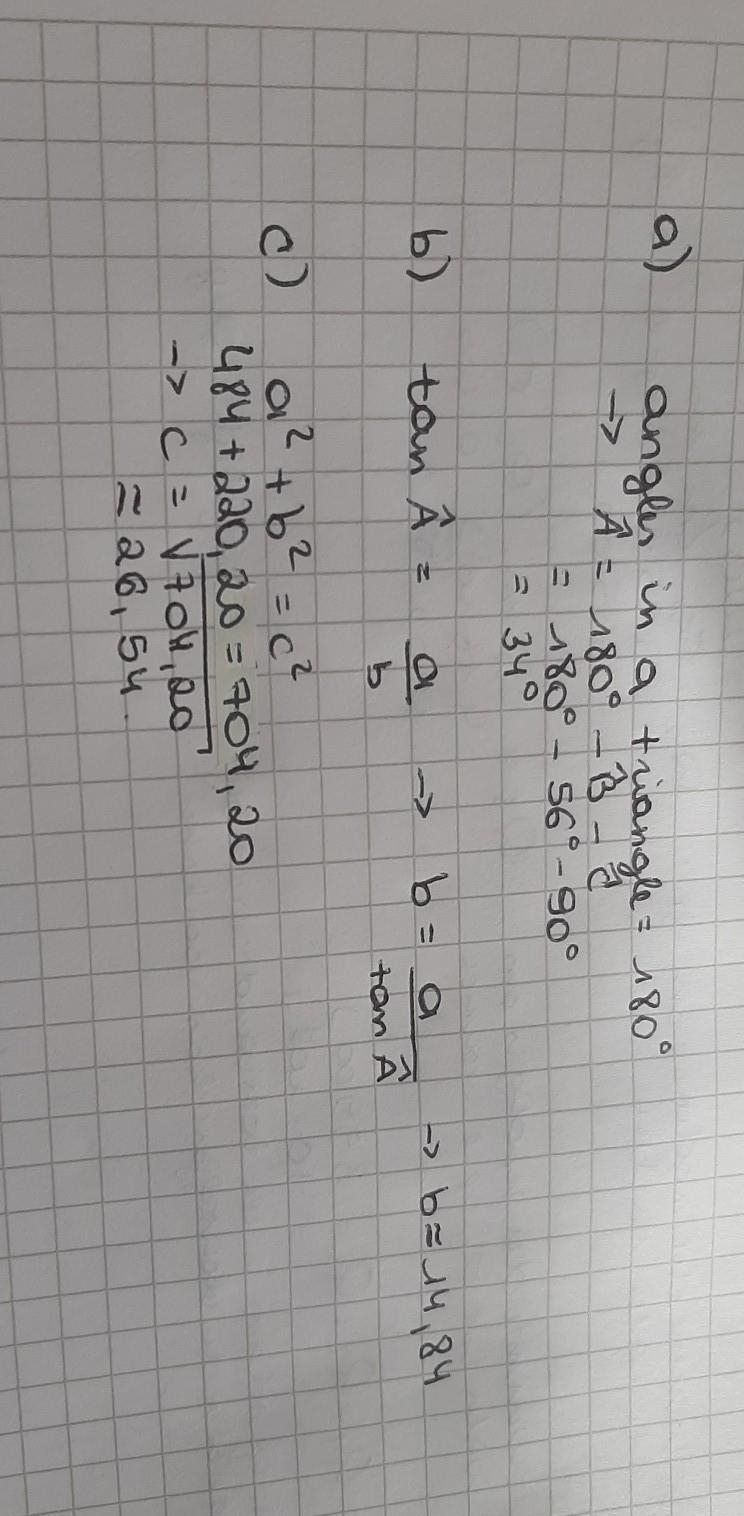 a) angles in a triangle = 180°
→ Â = 180° - B̂ - Ĉ
= 180° - 56° - 90°
= 34°
b) tan Â = a/b → b = a/tan Â → b = 14,84
c) a² + b² = c²
484 + 220,20 = 704,20
→ c = √704,20
≈ 26,54